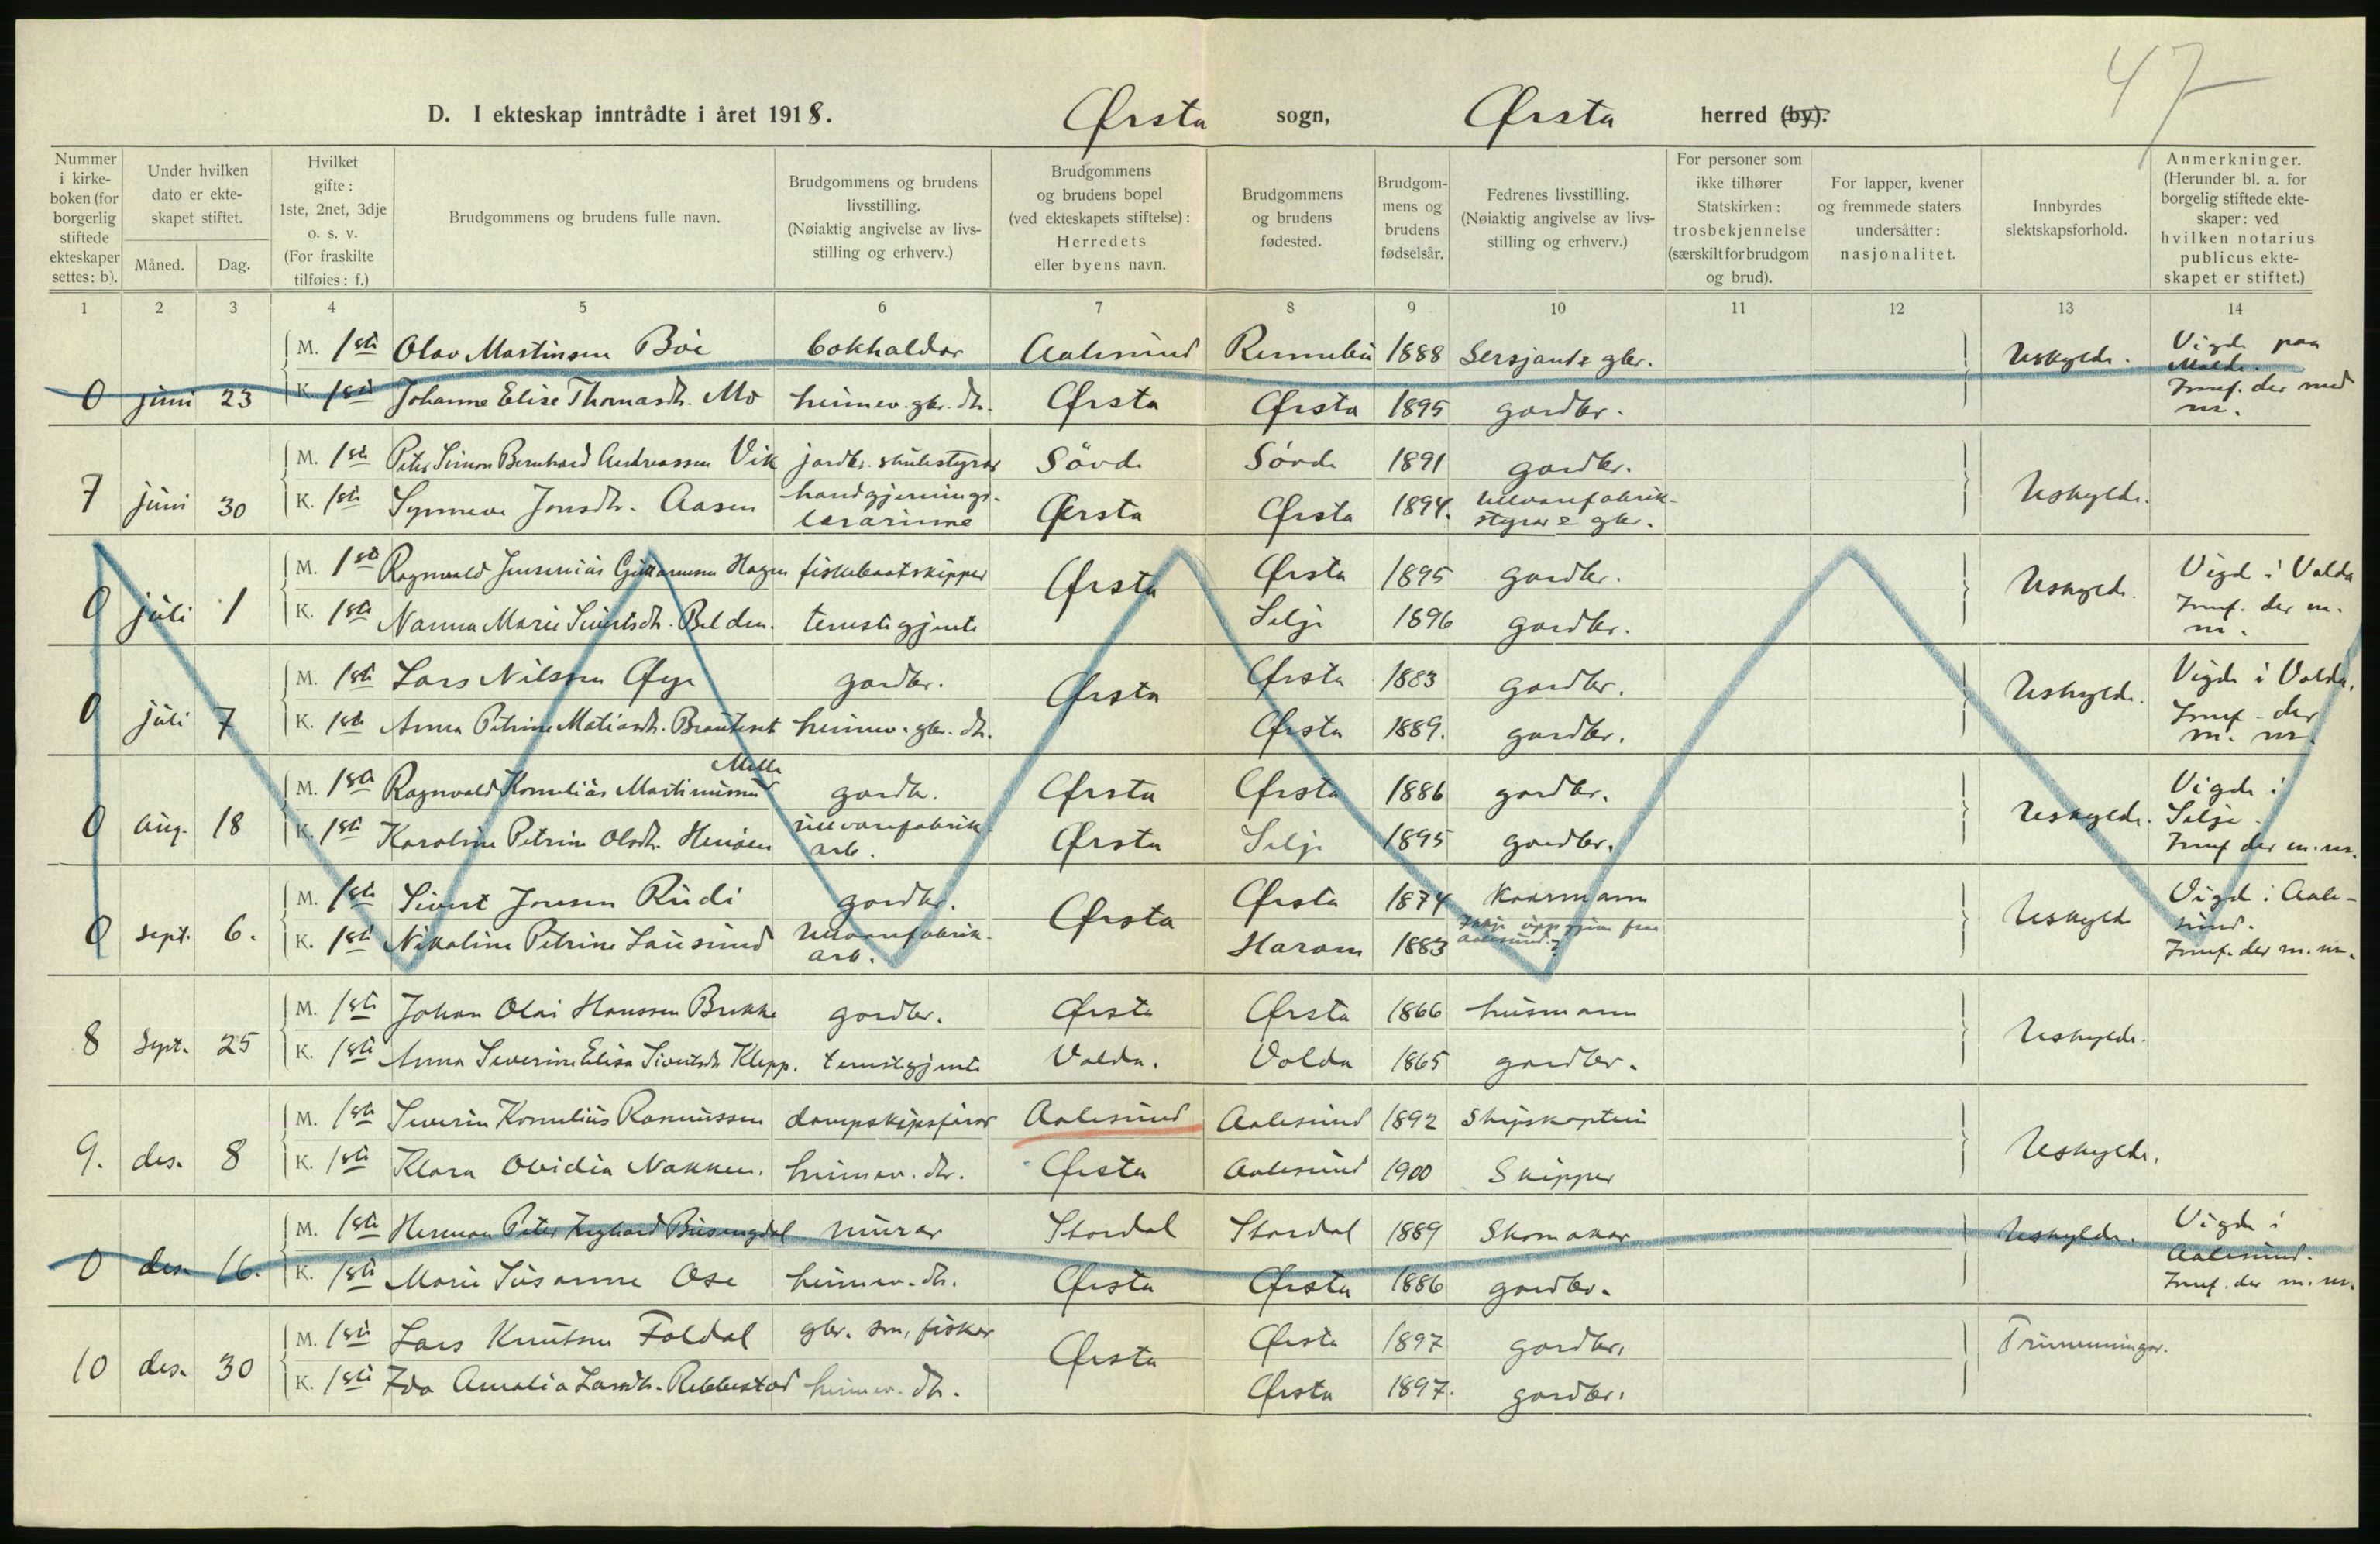 47
D. I ekteskap inntrådte i året 1918. Ørsta sogn, Ørsta herred (by).
Nummer i kirke- boken (for borgerlig stiftede ekteskaper settes: b).
Under hvilken dato er ekte- skapet stiftet.
Måned. Dag.
Hvilket gifte: 1ste, 2net, 3dje o. s. v. (For fraskilte tilføies: f.)
Brudgommens og brudens fulle navn.
Brudgommens og brudens livsstilling. (Nøiaktig angivelse av livs- stilling og erhverv.)
Brudgommens og brudens bopel (ved ekteskapets stiftelse): Herredets eller byens navn.
Brudgommens og brudens fødested.
Brudgom- mens og brudens fødselsår.
Fedrenes livsstilling. (Nøiaktig angivelse av livs- stilling og erhverv.)
For personer som ikke tilhører Statskirken: trosbekjennelse (særskilt for brudgom og brud).
For lapper, kvener og fremmede staters undersåtter: nasjonalitet.
Innbyrdes slektskapsforhold.
Anmerkninger. (Herunder bl. a. for borgelig stiftede ekte- skaper: ved hvilken notarius publicus ekte- skapet er stiftet.)
1 2 3 4 5 6 7 8 9 10 11 12 13 14
M. 1ste Olav Martinsen Böe bokhaldar Aalesund Rennebu 1888 Sersjant & gbr. Uskylde. Vigde paa Molde.
0 juni 23 K. 1ste Johanne Elise Thomasdtr. Mo heimev. gbr. dtr. Ørsta Ørsta 1895 gardbr. Innf. der med nr.
M. 1ste Peter Simon Bernhard Andreassen Vik jordbr. skulestyrar Sövde Sövde 1891 gardbr.
7 juni 30 K. 1ste Synneve Jonsdtr. Aasen handgjernings- lærarinne Ørsta Ørsta 1894. Ullvarefabrik- styrar & gbr. Uskylde.
M. 1ste Ragnvald Hagen fiskebaatskipper Ørsta Ørsta 1895 gardbr. Uskylde. Vigde i Volda
0 juli 1 K. 1ste Nanna Marie Sivertsdtr. Belden. tenestegjente Selje 1896 gardbr. Innf. der m. nr.
M. 1ste Lars Nilsen Øye gardbr. Ørsta Ørsta 1883 gardbr. Uskylde. Vigde i Volda.
0 juli 7 K. 1ste Anna Petrine Matiasdtr. Brauteset heimev. gbr. dtr. Ørsta 1889. gardbr. Innf. der m. nr.
M. 1ste Ragnvald Kornelius Martinusen Melle gardbr. Ørsta Ørsta 1886 gardbr. Uskylde. Vigde i Selje.
0 aug. 18 K. 1ste Karoline Petrine Olsdtr. ullvarefabrik arb. Ørsta Selje 1895 gardbr. Innf der m. nr.
M. 1ste Sivert Jonsen Rudi gardbr. Ørsta Ørsta 1874 Kaarmann Uskylde Vigde i Aale- sund.
0 sept. 6. K. 1ste Nikoline Petrine Lausund Ullvarefabrik- arb. Haram 1883 Ikkje uppgjeve fraa Aalesund. Innf. der m. nr.
M. 1ste Johan Olai Hanssen Brekke gardbr. Ørsta Ørsta 1866 husmann
8 Sept. 25 K. 1ste Anna Severine Elisa Sivertsdtr Klepp. tenestegjente Volda. Volda 1865 gardbr. Uskylde.
M. 1ste Severin Kornelius Rasmussen dampskipsførar Aalesund Aalesund 1892 Skipskaptein
9. des. 8 K. 1ste Klara Ovidia Nakken. heimev. dtr. Ørsta Aalesund 1900 Skipper Uskylde.
M. 1ste Herman Peter Busengdal murar Stordal Stordal 1889 Skomakar Uskylde. Vigde i Aalesund.
0 des. 16. K. 1ste Marie Susanne Ose heimev. dtr. Ørsta Ørsta 1886 gardbr. Innf. der m. nr.
M. 1ste Lars Knutsen Foldal gbr. son, fiskar Ørsta Ørsta 1897 gardbr. Trimenningar.
10 des. 30 K. 1ste Ida Amalia Larsdtr. Rebbestad heimev. dtr. Ørsta 1897. gardbr.